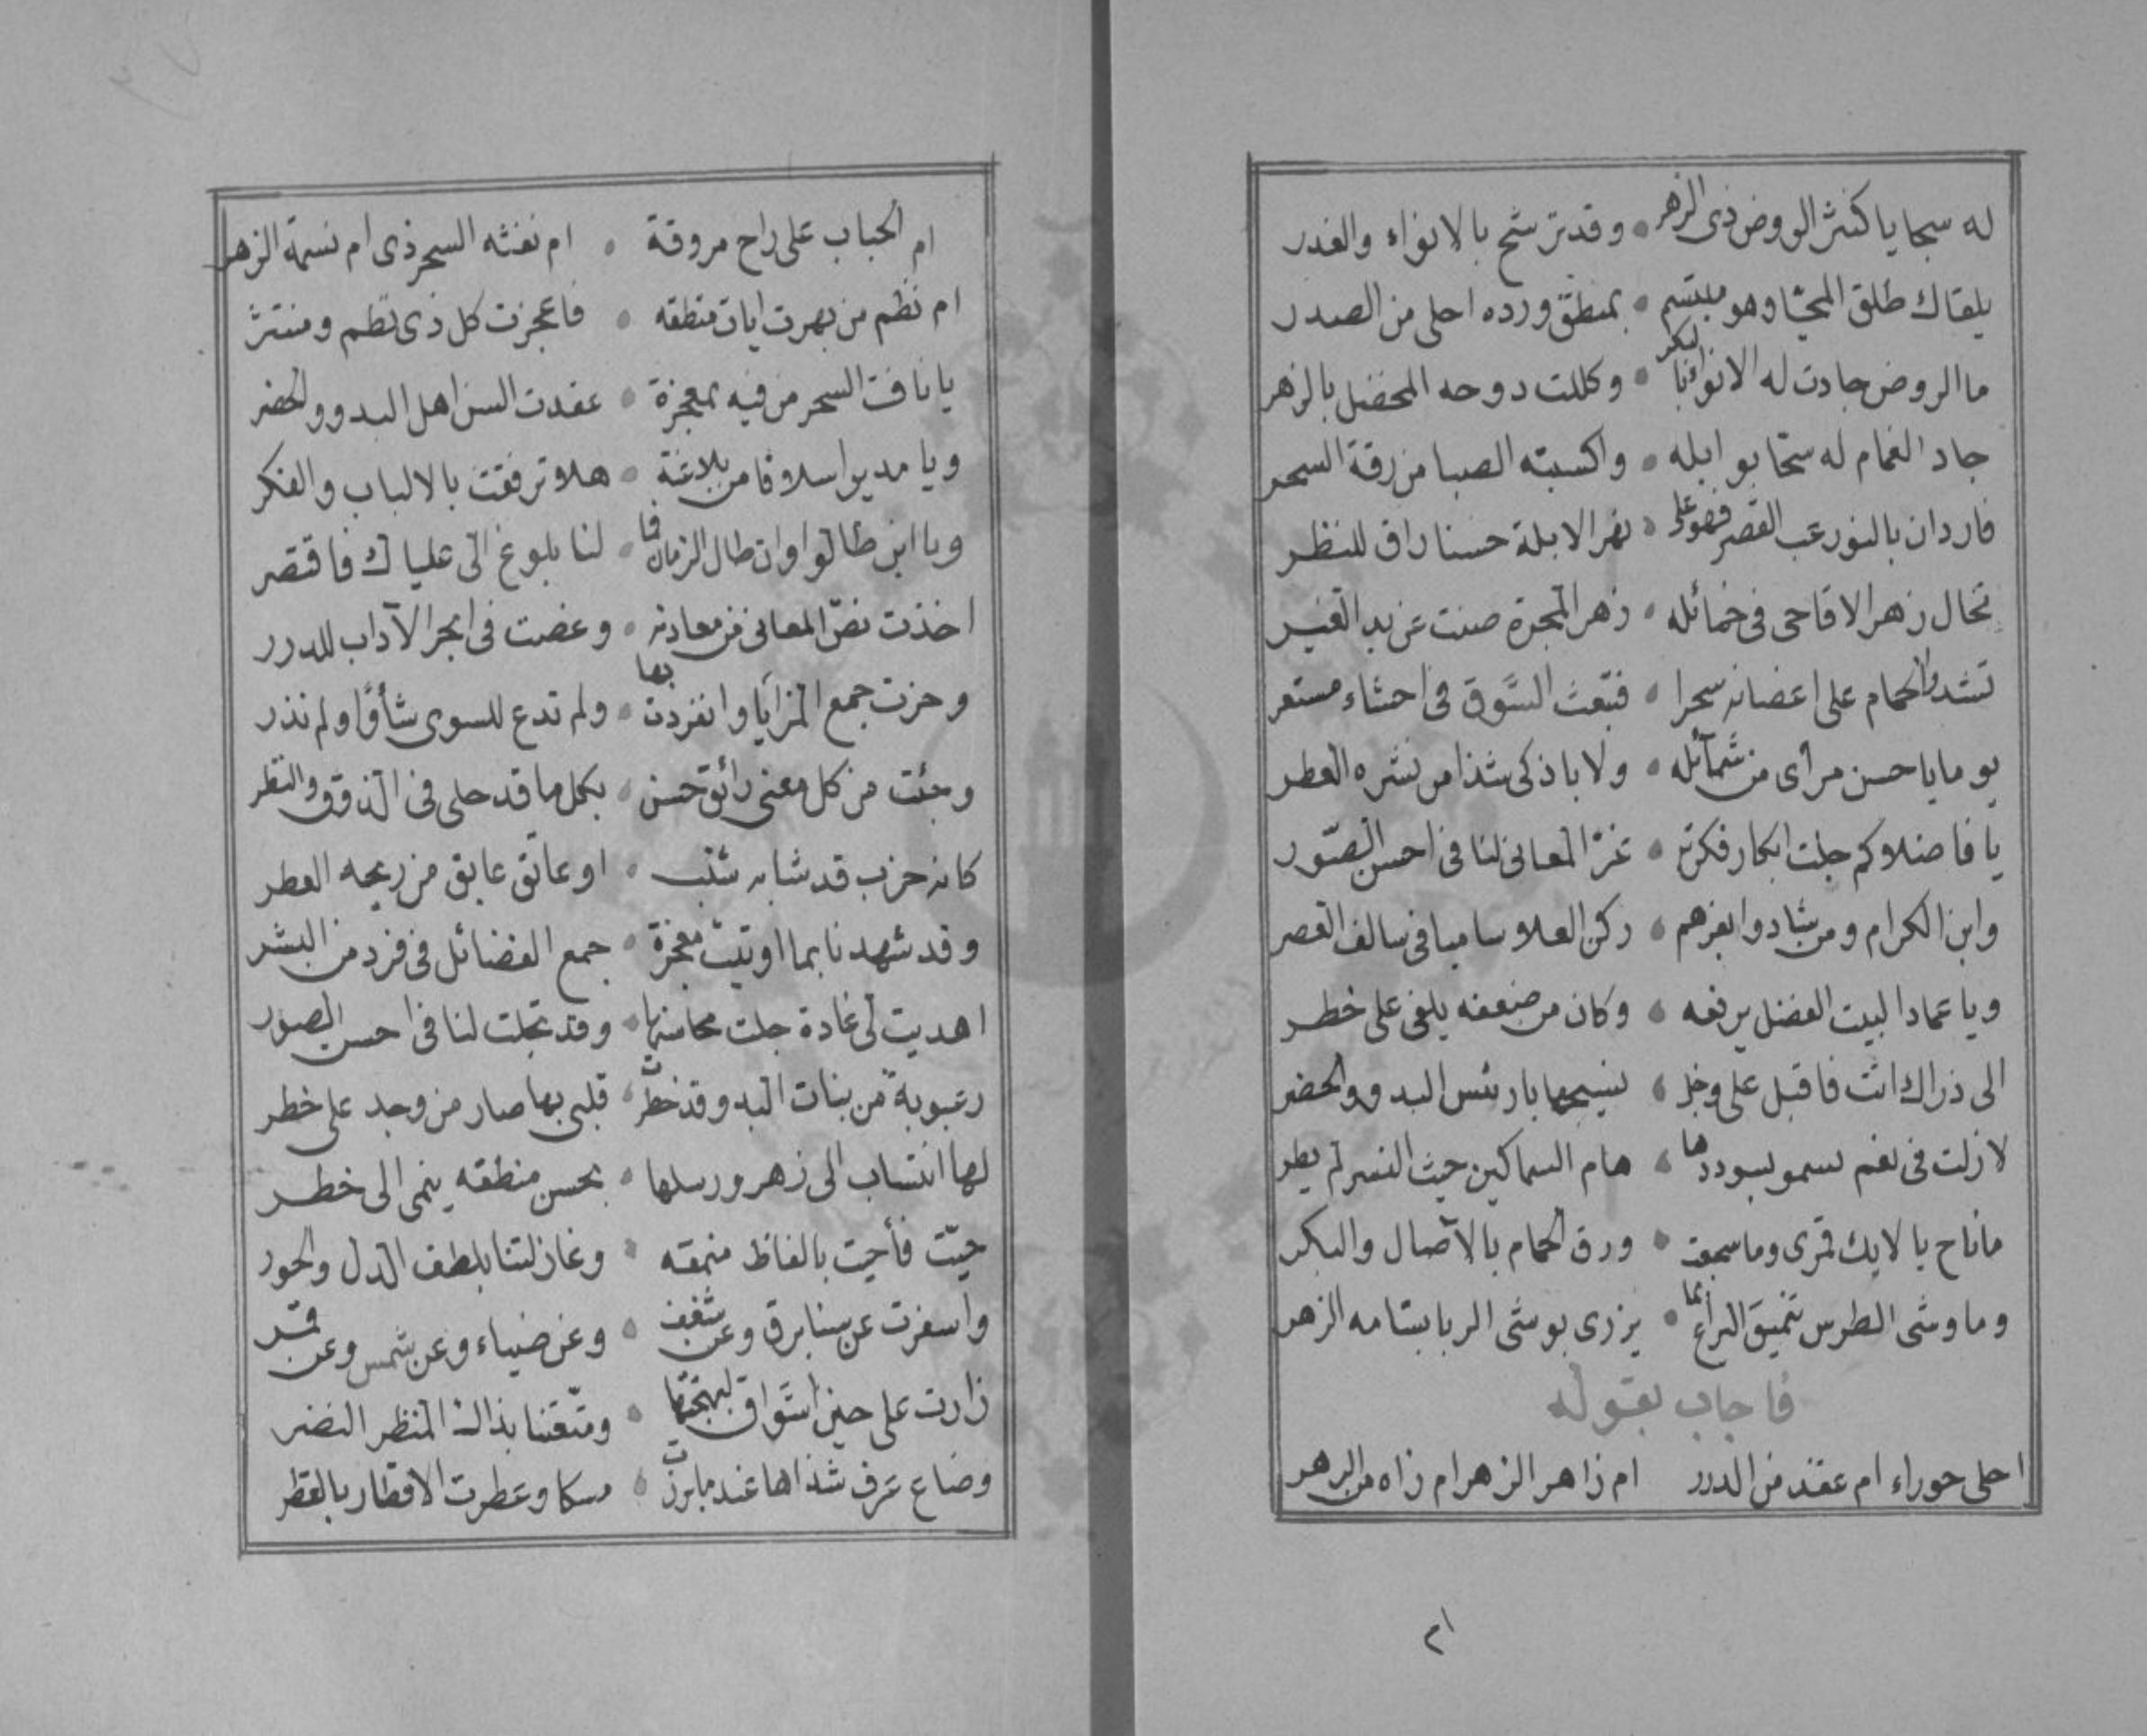 له سجايا كنشر الروض ذى الزهر • وقد ترشح بالانواء والغدر
يلقاك طلق المحيا وهو مبتسم • بمنطق ورده احلى من الصدر
ما الروض جادت له الانوا بالبكر • وكللت دوحه المخضل بالزهر
جاد الغمام له سحا بوابله • واكسبته الصبا من رقة السحر
فازدان بالنور غب القصر فهو على • نهر الابلة حسنا راق للنظر
تخال زهر الاقاحى فى خمائله • زهر المجرة صنت عن يد الغير
تشدوا الحمام على اغصانه سحرا • فتبعث الشوق فى احشاء مستعر
يوما ياحسن مرأى من شمآئله • ولا باذكى شذا من نشره العطر
يا فاضلا كم جلت ابكار فكرته • غر المعانى لنا فى احسن الصور
وابن الكرام ومن شادوا بعزهم • ركن العلا ساميا فى سالف العصر
ويا عمادا لبيت الفضل يرفعه • وكان من ضعفه يلفى على خطر
الى ذراك اتت فاقبل على وجل • يا رئس البدو والحضر
لا زلت فى نعم تسمو بسوددها • هام السماكين حيث النسر لم يطر
ما ناح بالايك قمرى وما سجعت • ورق الحمام بالآصال والبكر
وما وشى الطرس تنميق اليراع بما • يزرى بوشى الربا بسامه الزهر
فاجاب بقوله
احلى حوراء ام عقد من الدرر ام زاهر الزهر ام زاه من الزهر
ام
ام الحباب على راح مروقة • ام نفثه السحر ذى ام نسمة الزهر
ام نظم من بهرت ايات منطقه • فاعجزت كل ذى نظم ومنتثر
يا نافث السحر من فيه بمعجزة • عقدت السن اهل البدو والحضر
ويا مديرا سلافا من بلاغة • هلا ترفقت بالالباب والفكر
ويا ابن طالوا وان طال الزمان فما • لنا بلوغ الى علياك فاقتصر
اخذت نص المعانى من معادنه • وغصت فى ابحر الآداب للدرر
وحزت جمع المزايا وانفردت بها • ولم تدع للسوى شأوًا ولم تذر
وجئت من كل معنى رائق حسن • بكل ما قد حلى فى الذوق والنظر
كانه ضرب قد شابه شنب • او عاتق عابق من ريحه العطر
وقد شهدنا بما اوتيت معجزة • جمع الفضائل فى فرد من البشر
اهديت لى غادة جلت محاسنها • وقد تجلت لنا فى احسن الصور
رعبوبة من بنات البدو قد خطرت • قلبى بها صار من وجد على خطر
لها انتساب الى زهر ورسلها • بحسن منطقه ينمى الى خطر
حيّت فأحيت بالفاظ منمقه • وغازلتنا بلطف الدل والحور
واسفرت عن سنا برق وعن شغف • وعن ضياء وعن شمس وعن قمر
زارت على حين اشواق لبهجتها • ومتعتنا بذاك المنظر النضر
وضاع عرف شذاها عندما برزت • مسكا وعطرت الاقطار بالقطر